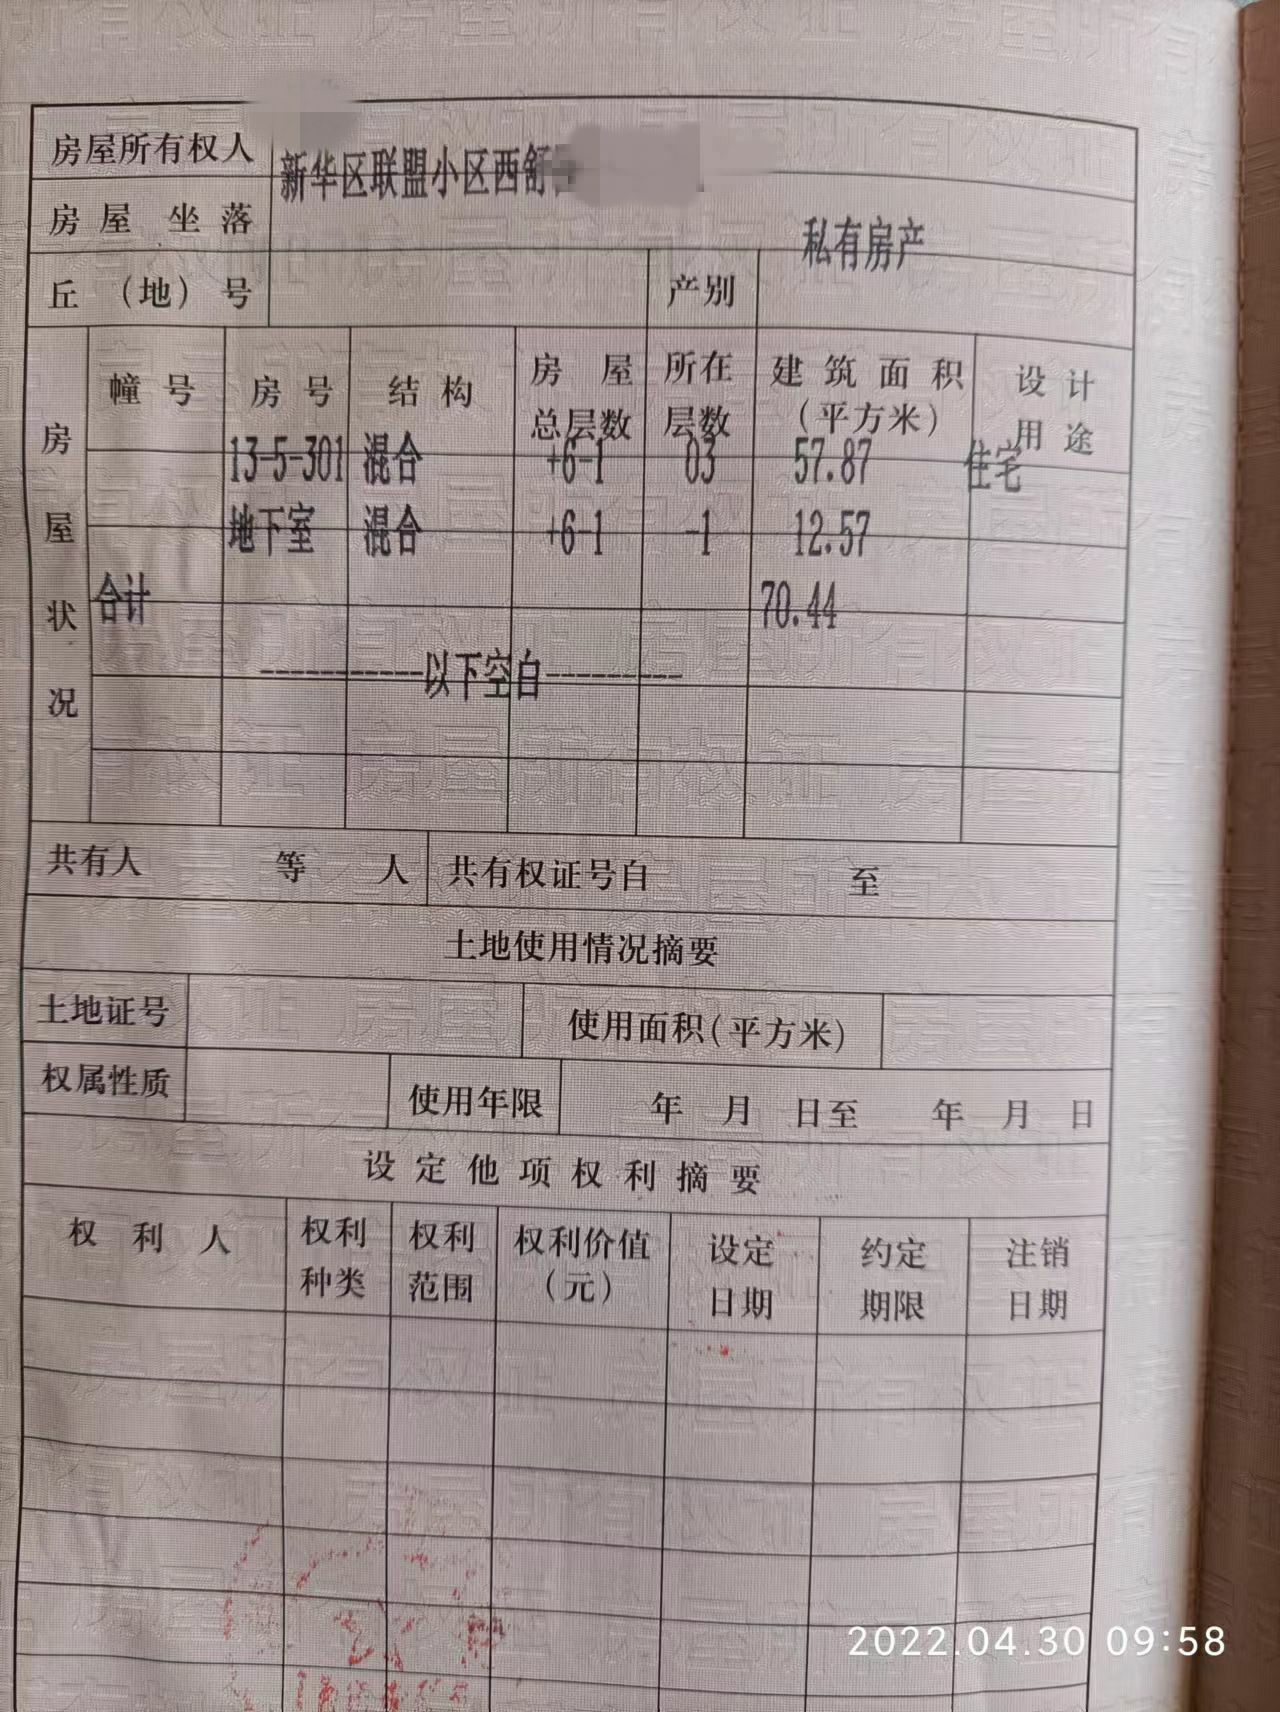 房屋所有权人
新华区联盟小区西舒
房屋 坐落
私有房产
丘 （地） 号 产别
房屋状况
幢号 房号 结构 房屋总层数 所在层数 建筑面积（平方米） 设计用途
13-5-301 混合 +6-1 03 57.87 住宅
地下室 混合 +6-1 -1 12.57
合计 70.44
-----------以下空白---------
共有人 等 人 共有权证号自 至
土地使用情况摘要
土地证号 使用面积(平方米)
权属性质 使用年限 年 月 日至 年 月 日
设定他项权利摘要
权利人 权利种类 权利范围 权利价值（元） 设定日期 约定期限 注销日期
2022.04.30 09:58